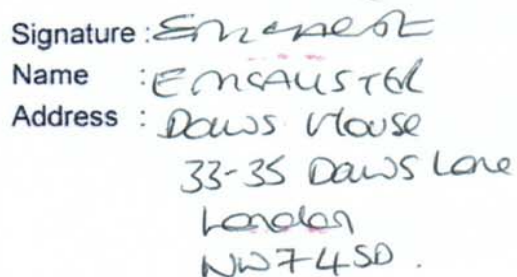 Signature :
Name : E MCALISTER
Address : Daws House
33-35 Daws Lane
London
NW7 4SD.